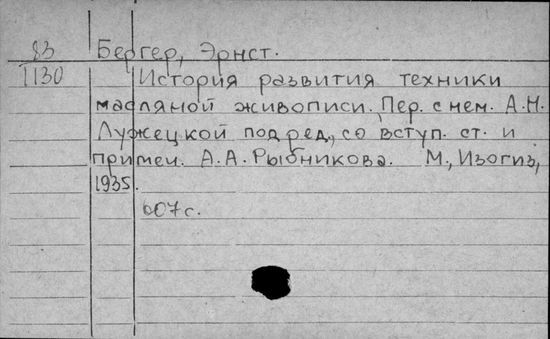 83 Бергер, Эрнст.
1130 История развития техники
масляной живописи. Пер. с нем. А.Н.
Лужецкой под ред., со вступ. ст. и
примеч. А.А. Рыбникова. М., Изогиз,
1935.
607 с.